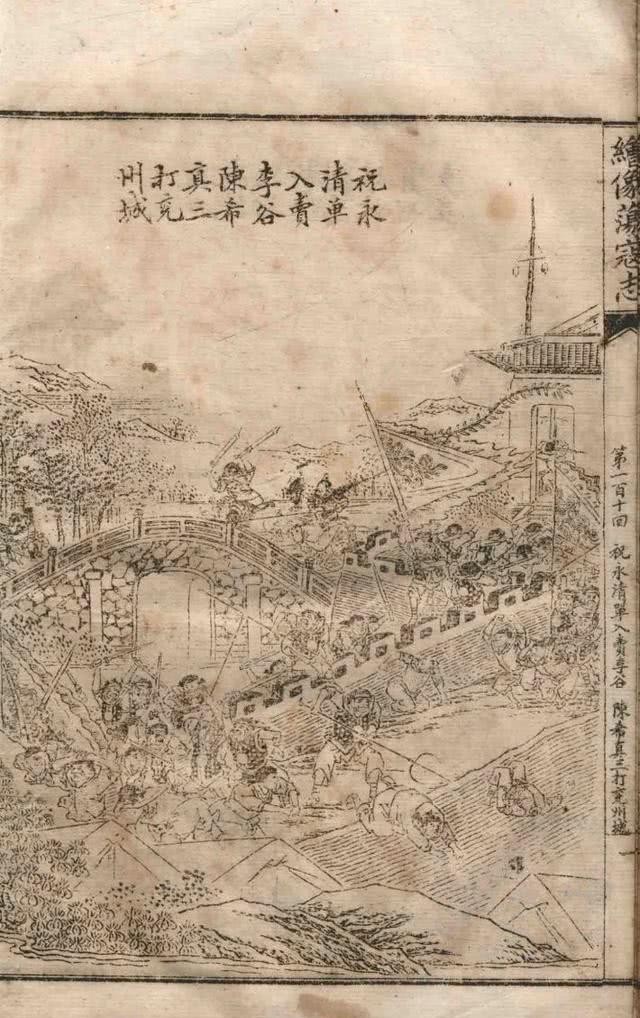 繪像蕩寇志
第一百十回 祝永清單入賣李谷 陳希真三打兗州城
祝永
清单
入賣
李谷
陳希
真三
打兗
州城